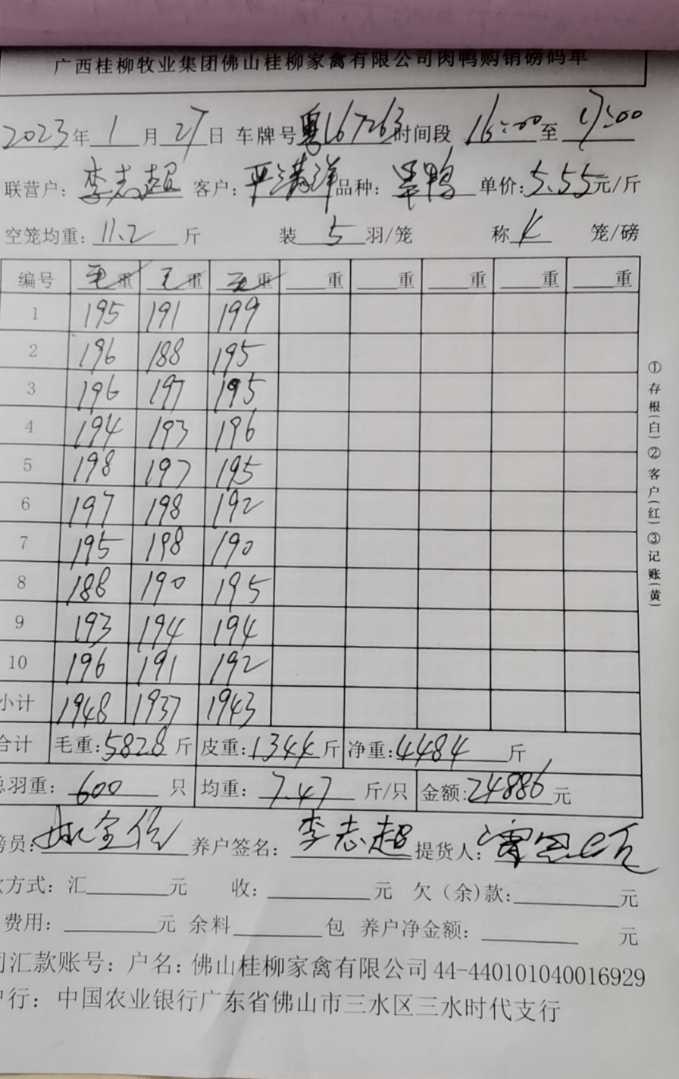 广西桂柳牧业集团佛山桂柳家禽有限公司肉鸭购销磅码单
2023年 1 月 27 日 车牌号 粤167263 时间段 16:00 至 17:00
联营户: 李志超 客户: 严满洋 品种: 旱鸭 单价: 5.55元/斤
空笼均重: 11.2 斤 装 5 羽/笼 称 4 笼/磅
编号 毛重 毛重 毛重 重 重 重 重 重
1 195 191 199
2 196 188 195
3 196 197 195
4 194 193 196
5 198 197 195
6 197 198 192
7 195 198 190
8 188 190 195
9 193 194 194
10 196 191 192
小计 1948 1937 1943
合计 毛重: 5828 斤 皮重: 1344 斤 净重: 4484 斤
总羽重: 600 只 均重: 7.47 斤/只 金额: 24886 元
磅员: 养户签名: 李志超 提货人:
款方式: 汇 元 收: 元 欠(余)款: 元
费用: 元 余料 包 养户净金额: 元
司汇款账号: 户名: 佛山桂柳家禽有限公司 44-440101040016929
户行: 中国农业银行广东省佛山市三水区三水时代支行
①存根(白)②客户(红)③记账(黄)